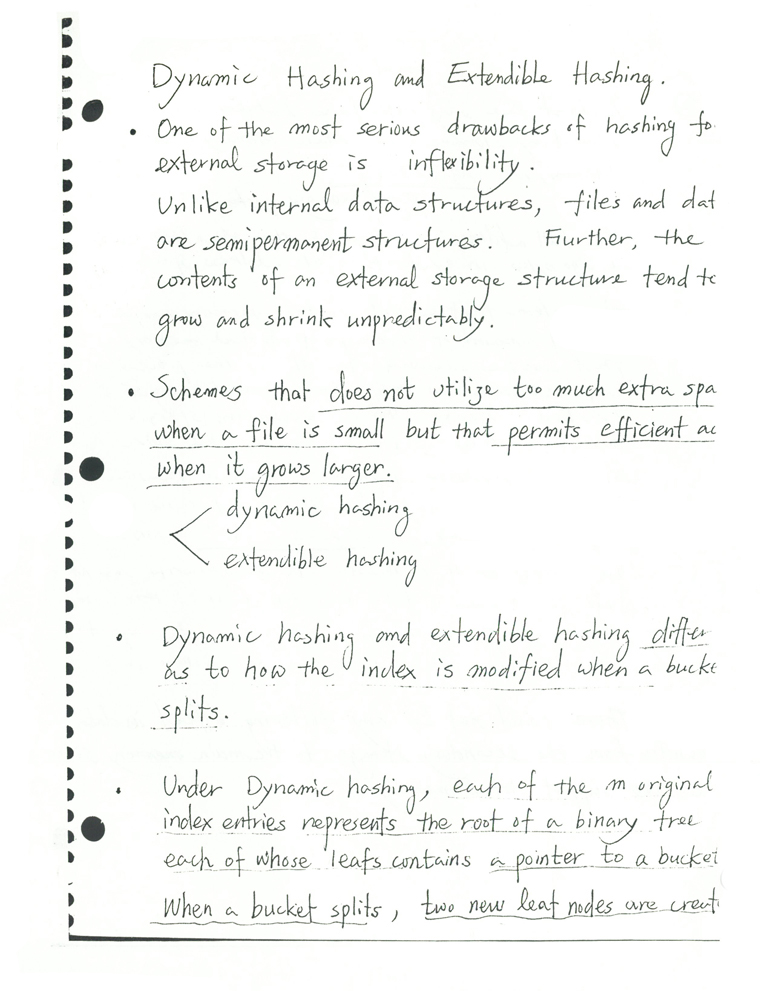 Dynamic Hashing and Extendible Hashing.
• One of the most serious drawbacks of hashing fo
external storage is inflexibility.
Unlike internal data structures, files and dat
are semipermanent structures. Further, the
contents of an external storage structure tend to
grow and shrink unpredictably.
• Schemes that does not utilize too much extra spa
when a file is small but that permits efficient ac
when it grows larger.
dynamic hashing
extendible hashing
• Dynamic hashing and extendible hashing differ
as to how the index is modified when a bucke
splits.
• Under Dynamic hashing, each of the m original
index entries represents the root of a binary tree
each of whose leafs contains a pointer to a bucket
When a bucket splits, two new leaf nodes are creat